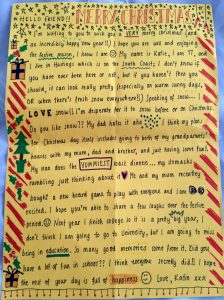 HELLO FRIEND!! MERRY CHRISTMAS
I'm writing to you to wish you a VERY merry christmas (and
an incredibly happy new year!!) I hope you are well and enjoying
the festive season, I know I am 😊 My name is Katie, I am and
I live in Hastings which is on the South Coast; I don't know if
you have ever been here or not, but if you haven't then you
should, it can look really pretty (especially on warm sunny days),
OR when there's fresh snow everywhere!!) Speaking of snow...
LOVE snow!! I'm desperate for it to snow before or on Christmas.
Do you like snow?? My dad hates it and I think my plan
for Christmas day itself includes going to both of my grandparents'
houses with my mum, dad and brother, and just having some fun!!
My nan does the YUMMIEST roast dinner... my stomachs
rumbling just thinking about it ♥ Me and my mum recently
bought a new board game to play with everyone and I am
excited. I hope you're able to share a few laughs over the festive
period 😊 Next year I finish college so it is a pretty big year,
don't think I am going to go to University, but I am going to miss
being in education, so many good memories come from it. Did you
have a lot of fun in school?? I think everyone secretly did! I hope
the rest of your day is full of happiness 😊 Love, Katie xxx